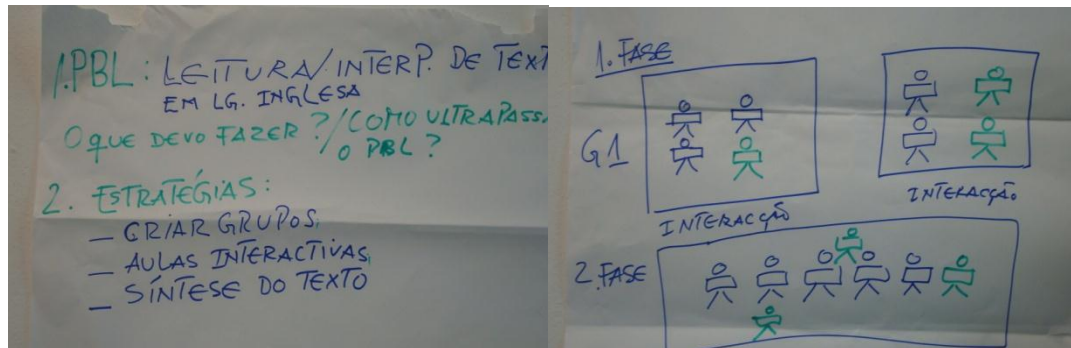 1.PBL: LEITURA/INTERP. DE TEXT
EM LG. INGLESA
O QUE DEVO FAZER?/COMO ULTRAPASS
O PBL?
2. ESTRATÉGIAS:
— CRIAR GRUPOS,
— AULAS INTERACTIVAS,
— SÍNTESE DO TEXTO
1. FASE
G1
INTERACÇÃO
INTERACÇÃO
2. FASE